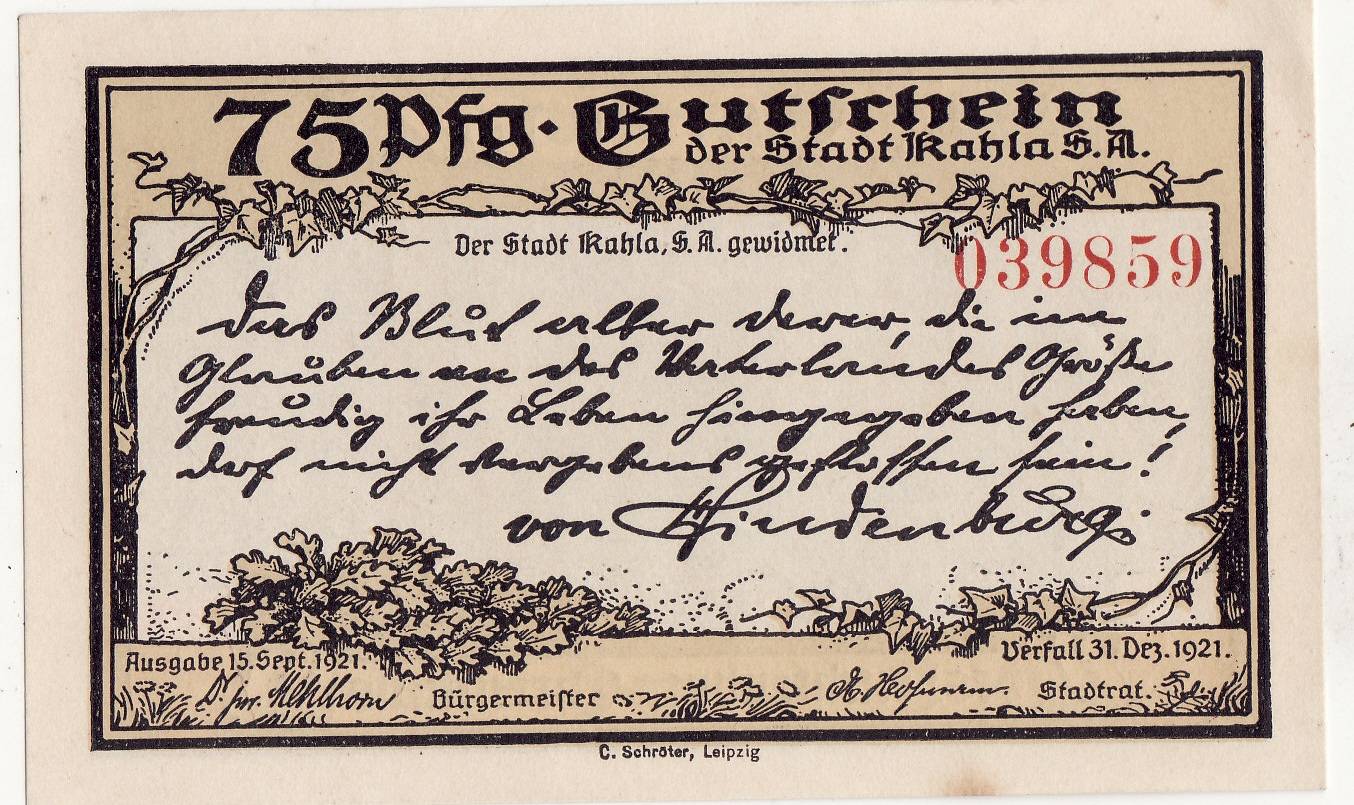 75 Pfg. Gutschein
der Stadt Kahla S.A.
Der Stadt Kahla, S.A. gewidmet.
039859
Das Blut aller derer, die im
Glauben an des Vaterlandes Größe
freudig ihr Leben hingegeben haben,
darf nicht vergebens geflossen sein!
von Hindenburg.
Ausgabe 15. Sept. 1921.
Verfall 31. Dez. 1921.
Dr jur. Mehlhorn Bürgermeister
Stadtrat.
C. Schröter, Leipzig